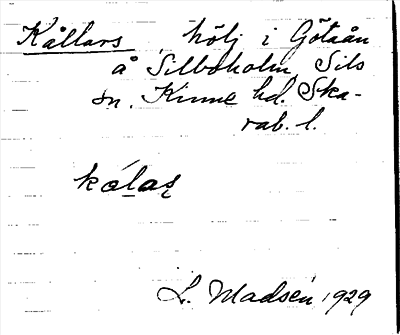 Kållars, hölj i Götaån
å Silboholm, Sils
sn. Kinne hd. Ska-
rab. l.
kålas
L. Madsén 1929